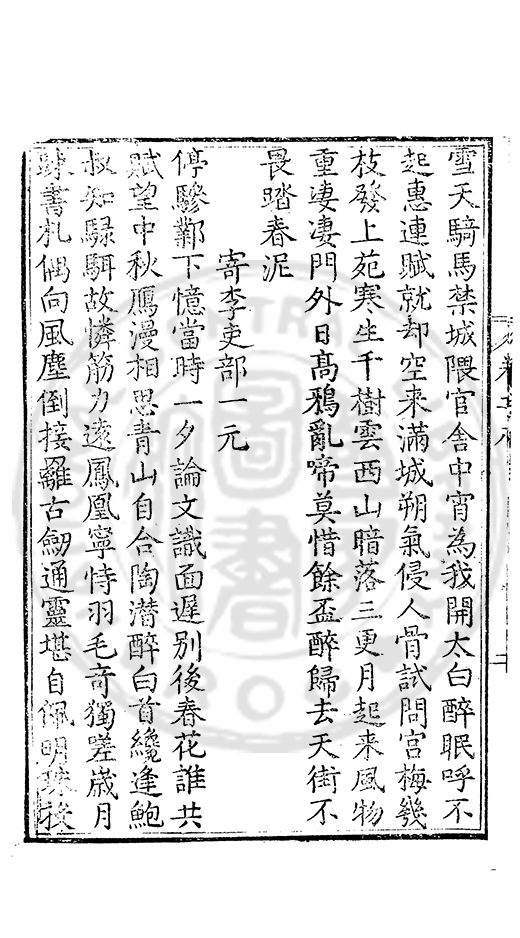 雪天騎馬禁城隈官舍中宵為我開太白醉眠呼不
起惠連賦就却空来滿城朔氣侵人骨試問宫梅幾
枝發上苑寒生千樹雲西山暗落三更月起来風物
重凄凄門外日高鴉亂啼莫惜餘盃醉歸去天街不
畏踏春泥
寄李吏部一元
停驂鄴下憶當時一夕論文識面遲别後春花誰共
賦望中秋鴈漫相思青山自合陶潜醉白首纔逢鮑
叔知騄駬故憐筋力遠鳳凰寧恃羽毛竒獨嗟歲月
踈書札偶向風塵倒接䍦古劒通靈堪自佩明珠投